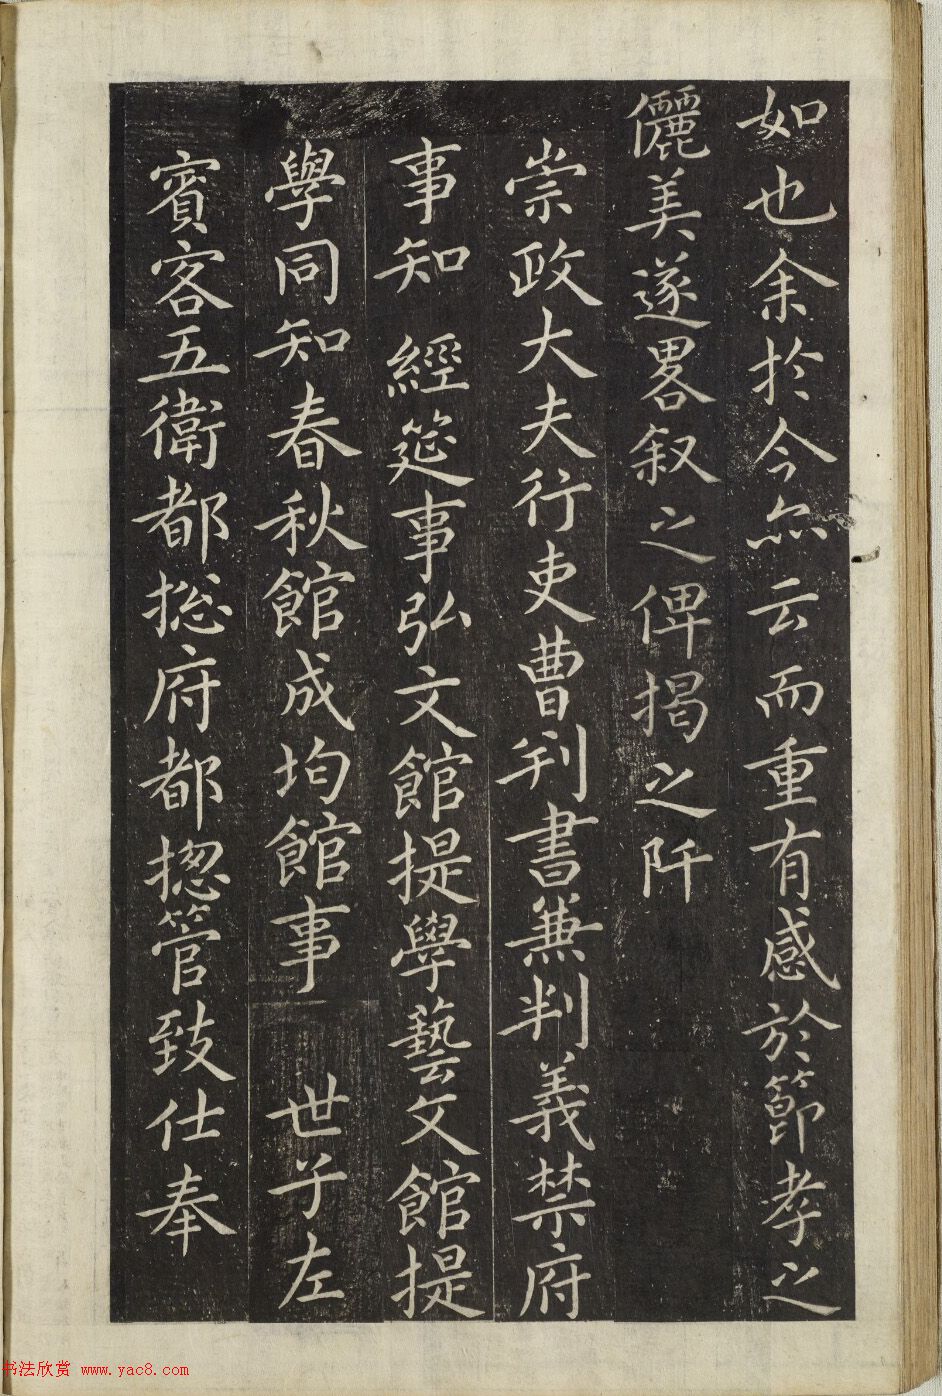 如也余於今亦云而重有感於節孝之
儷美遂畧叙之俾揭之阡
崇政大夫行吏曹判書兼判義禁府
事知 經筵事弘文館提學藝文館提
學同知春秋館成均館事 世子左
賓客五衛都摠府都摠管致仕奉
书法欣赏 www.yac8.com